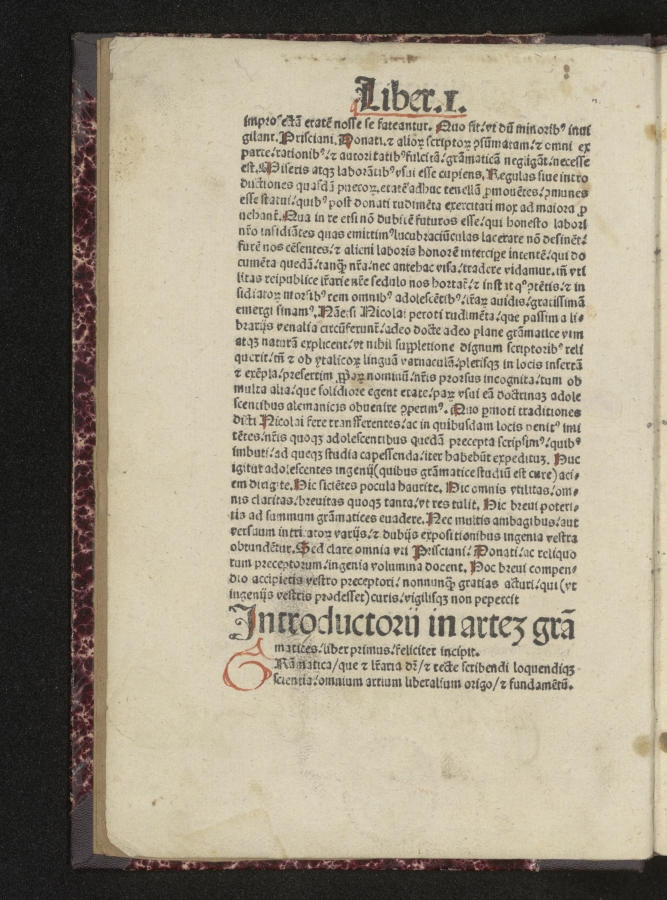 Liber.I.
improfectā etatē nosse se fateantur. Quo fit:vt dū minoribꝰ inui
gilant. Prisciani. Donati.⁊ alioꝝ scriptoꝝ ꝯsūmatam:⁊ omni ex
parte:rationibꝰ:⁊ autoritatibꝰ fulcitā:grāmaticā negligāt:necesse
est. Miseris atqꝫ laborātibꝰ vsui esse cupiens. Regulas siue intro
ductiones quasdā pueroꝝ.etatē adhuc tenellā ꝓmouētes:ꝯmunes
esse statui:quibꝰ post donati rudimēta exercitari mox ad maiora ꝓ
uehant᷑. Qua in re etsi nō dubitē futuros esse:qui honesto labori
nr̄o insidiātes quas emittimꝰ lucubraciūculas lacerare nō desinēt:
furē nos cēsentes:⁊ alieni laboris honorē intercipe intentē:qui do
cumēta quedā:tanqꝫ nr̄a:nec antehac visa:tradere vidamur.tn̄ vti
litas reipublice lr̄arie
sidiatoꝝ morsibꝰ rem omnibꝰ adolescētibꝰ:lr̄aꝝ auidis:gratissimā
emergi sinamꝰ. Nicolai peroti rudimēta:que passim a li-
brarijs venalia circūferunt᷑:adeo docte adeo plane grāmatice vim
atqꝫ naturā explicent:vt nihil suppletione dignum scriptoribꝰ reli
querit:tn̄ ⁊ ob ytalicoꝝ linguā vernaculā:plerisqꝫ in locis insertā
⁊ exēpla:presertim ꝓpꝛioꝝ nominū:nr̄is prorsus incognita:tum ob
multa alia:que solidiore egent etate:paꝝ vsui eā doctrinaꝫ adole
scentibus alemanicis obuenire ꝯperimꝰ. Quo ꝓmoti traditiones
dicti Nicolai fere transferentes:ac in quibusdam locis penitꝰ imi
tētes:nr̄is quoqꝫ adolescentibus quedā precepta scripsimꝰ:quibꝰ
imbuti:ad queqꝫ studia capessenda:iter habebūt expedituꝫ. Huc
igitur adolescentes ingenij(quibus grāmatice studiū est cure)aci-
em dirigite. Hic siciētes pocula haurite. Hic omnis vtilitas:om-
nis claritas:breuitas quoqꝫ tanta:vt res tulit. Hic breui poteri-
tis ad summum grāmatices euadere. Nec multis ambagibus:aut
versuum intricatoꝝ varijs:⁊ dubijs expositionibus ingenia vestra
obtundētur. Sed clare omnia vti Prisciani: Donati:ac reliquo
rum preceptorum:ingenia volumina docent. Hoc breui compen-
dio accipietis vestro preceptori:nonnunqꝫ gratias acturi:qui(vt
ingenijs vestris prodesset)curis:vigilijsqꝫ non pepercit
Introductorij in arteꝫ grā
matices:liber primus:feliciter incipit.
GRāmatica/que ⁊ lr̄aria dr̄/⁊ recte scribendi loquendiqꝫ
scientia:omnium artium liberalium origo/⁊ fundamētū.